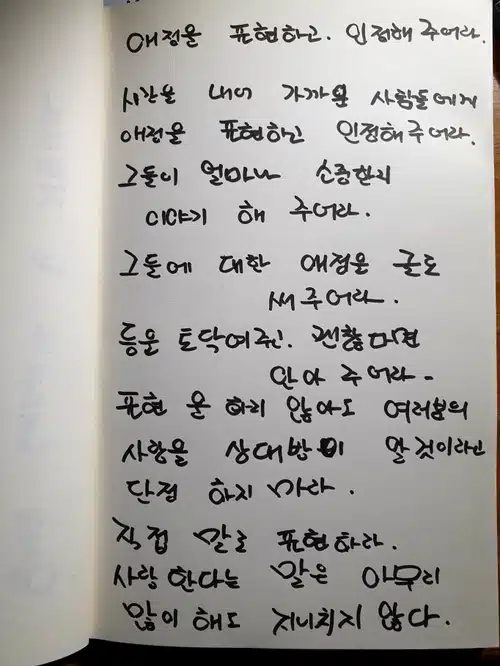 애정을 표현하고. 인정해 주어라.
시간을 내어 가까운 사람들에게
애정을 표현하고 인정해주어라.
그들이 얼마나 소중한지
이야기 해 주어라.
그들에 대한 애정을 글로
써 주어라.
등을 토닥여주고. 괜찮다면
안아 주어라.
표현 을 하지 않아도 여러분의
사랑을 상대방이 알 것이라고
단정 하지 마라.
직접 말로 표현하라.
사랑 한다는 말은 아무리
많이 해도 지나치지 않다.